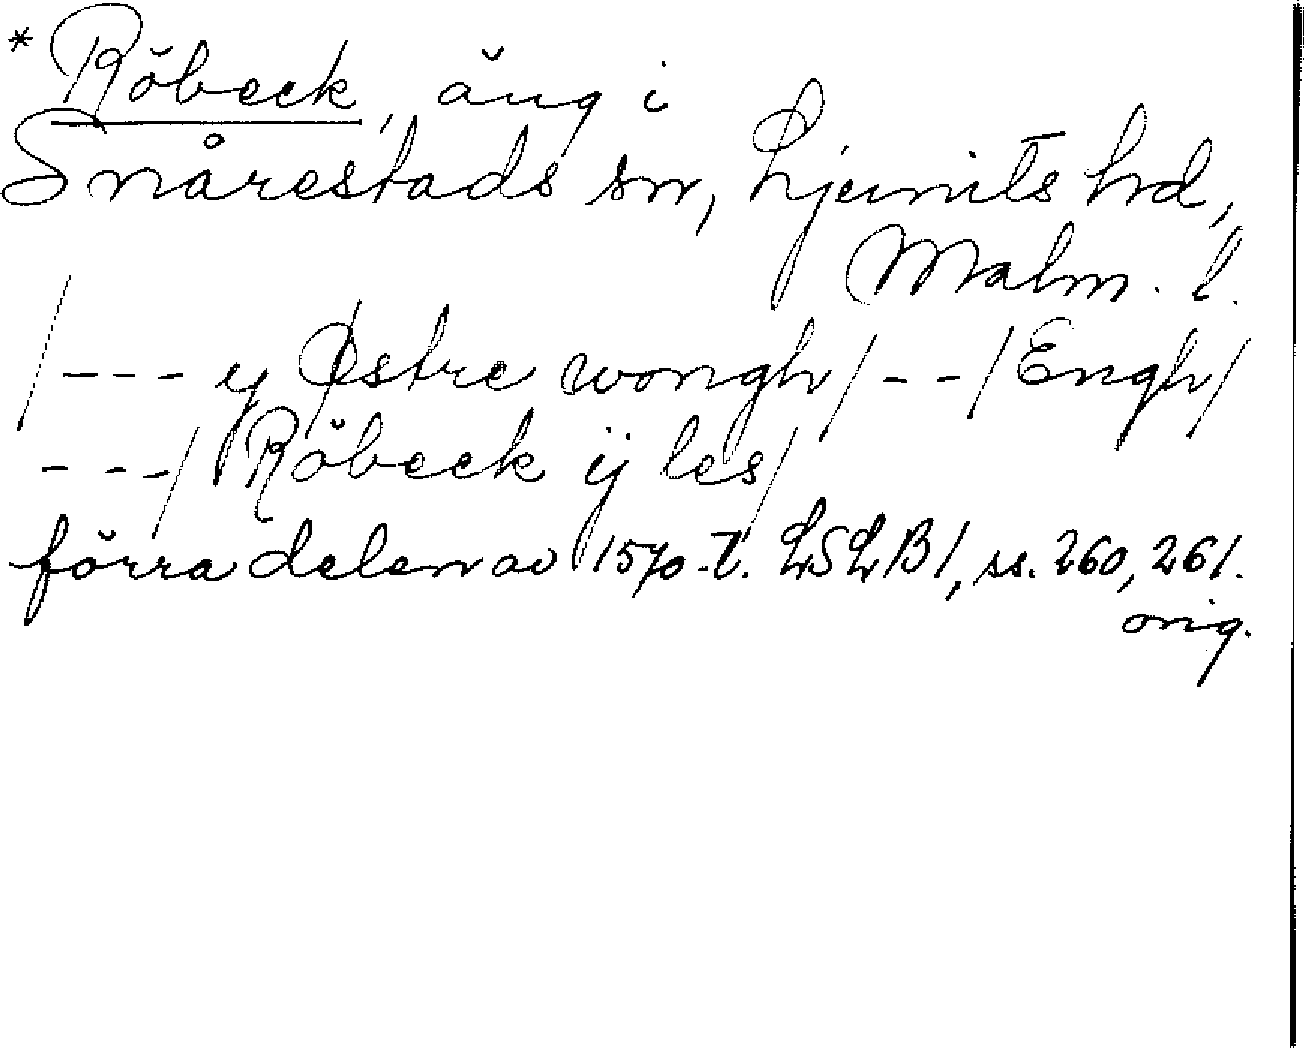 * Röbeck, äng i
Snårestads sn, Ljunits hd,
Malm. l.
/--- y Østre wongh/--/Engh/
---/ Röbeck ij les/
förra delen av 1570-t. LSLB1, ss. 260, 261.
orig.